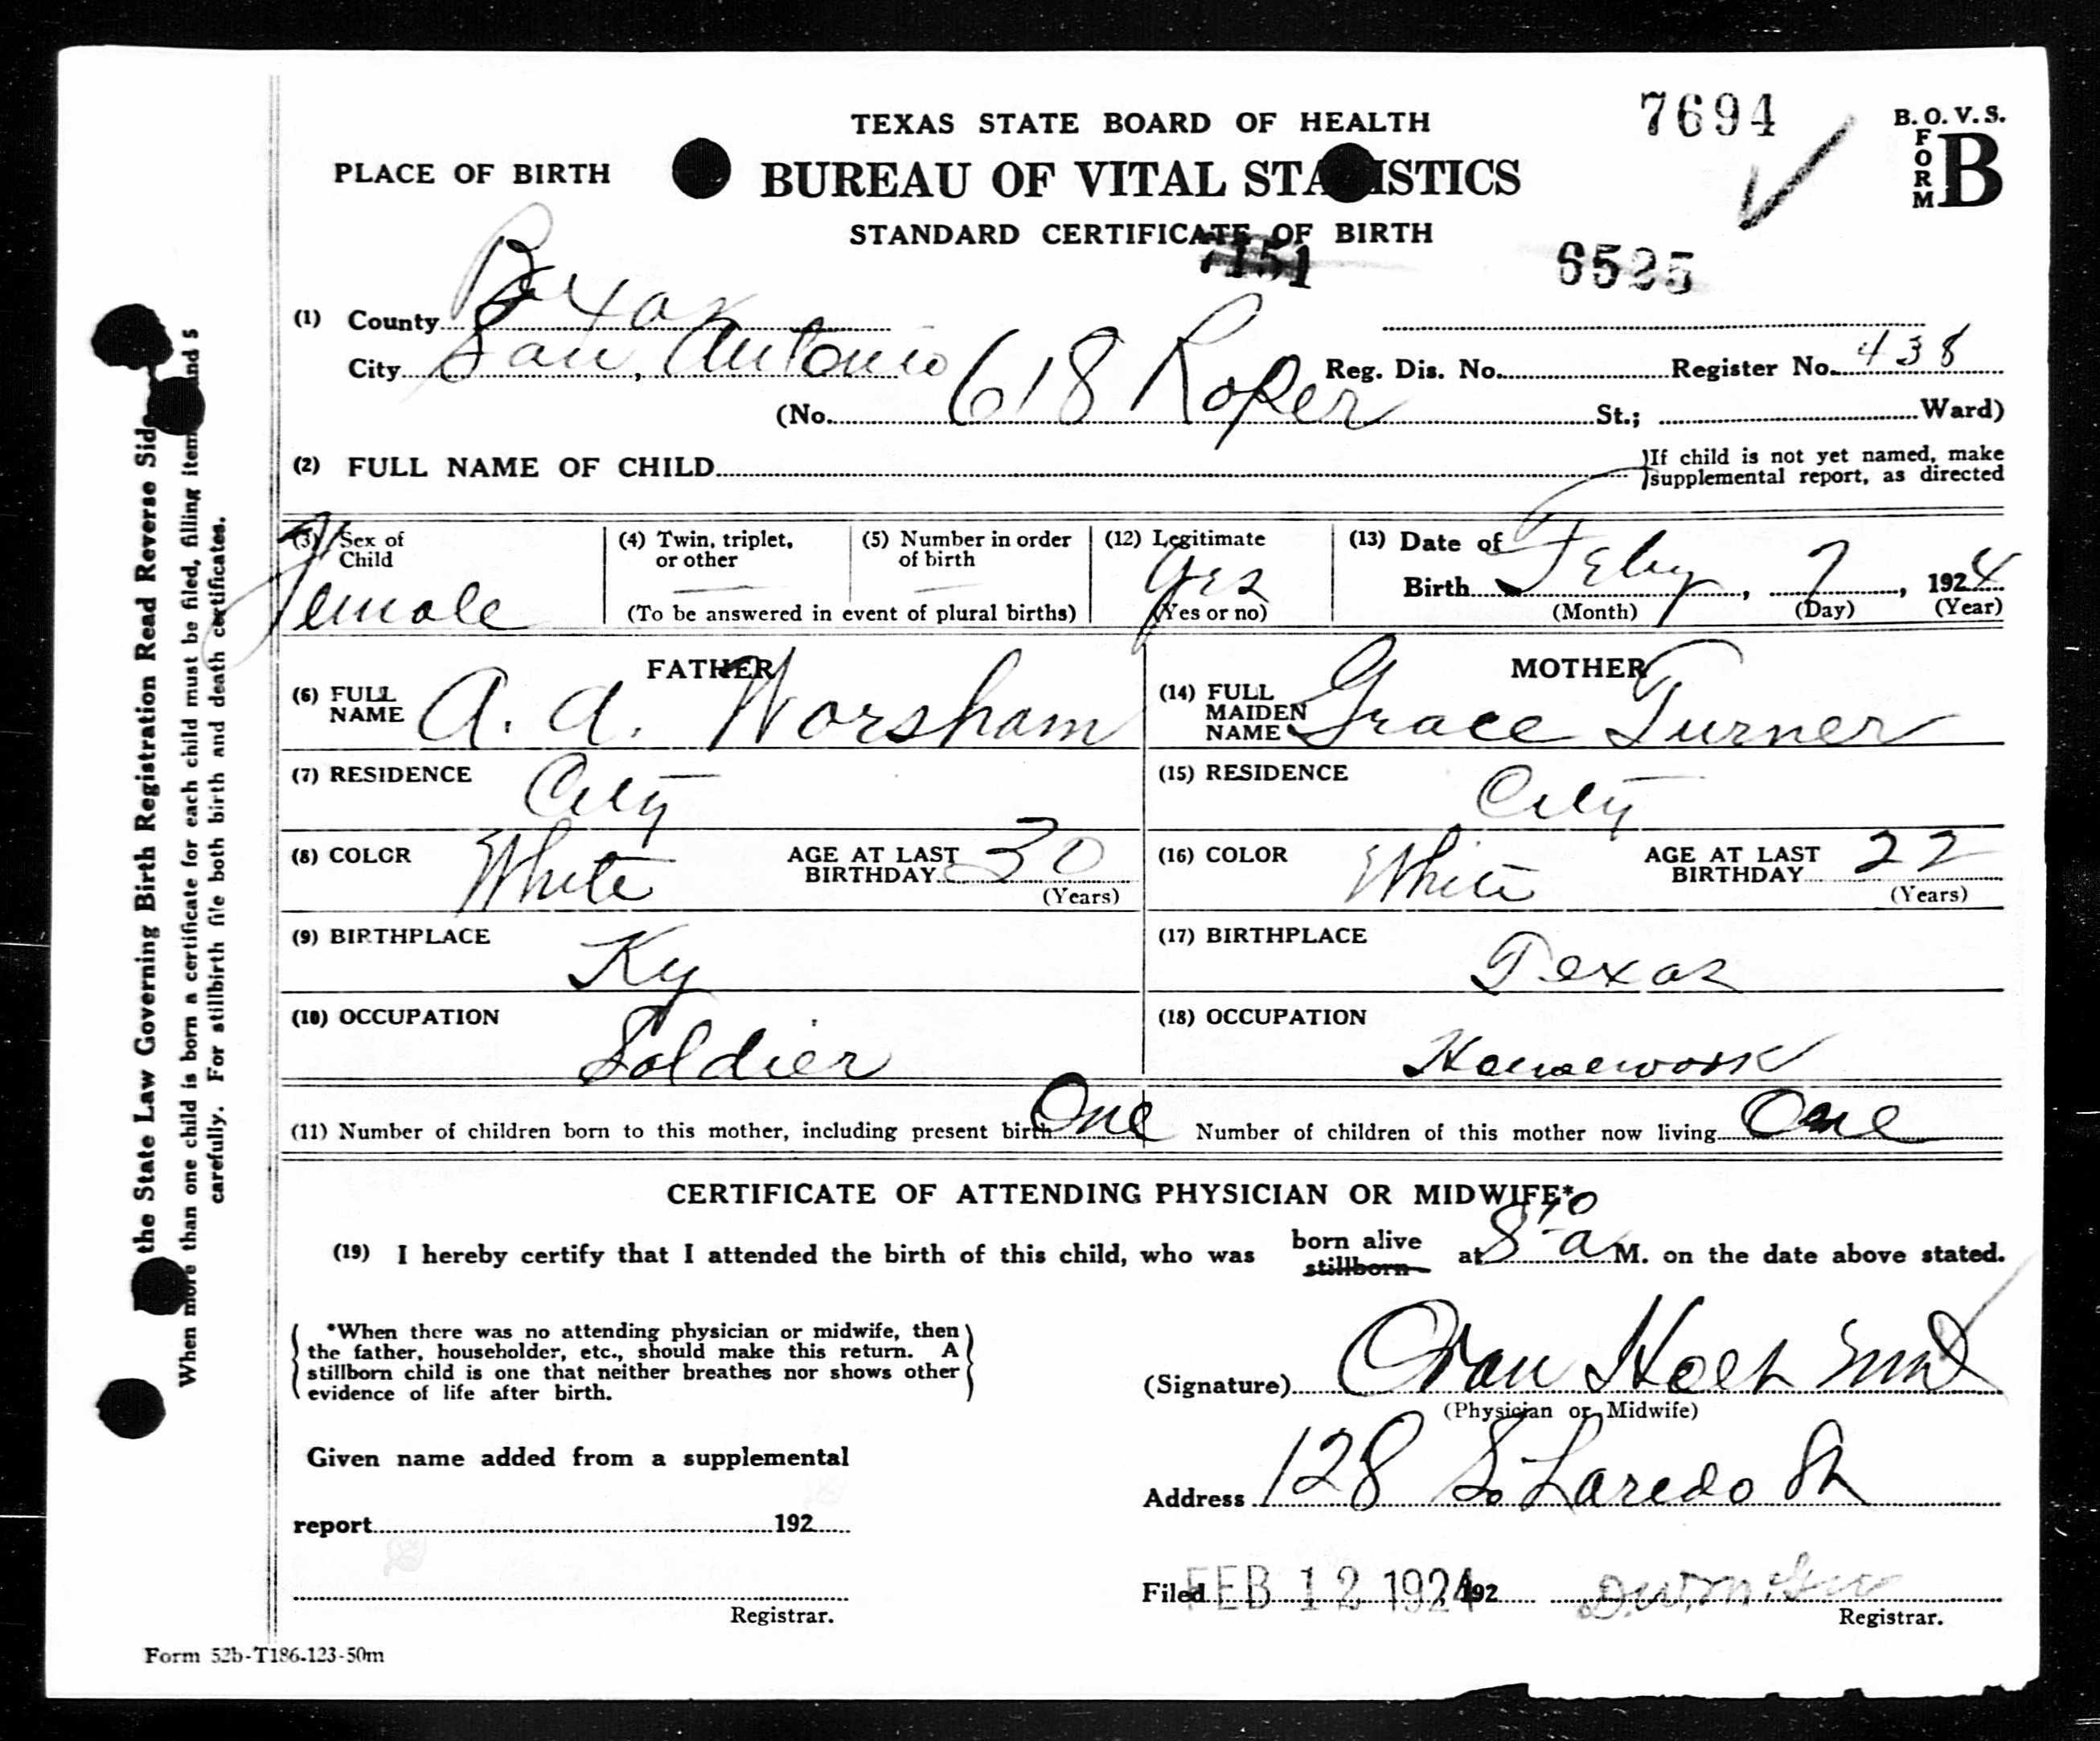 7694
TEXAS STATE BOARD OF HEALTH
B. O. V. S.
FORM B
PLACE OF BIRTH
BUREAU OF VITAL STATISTICS
STANDARD CERTIFICATE OF BIRTH
7151
6525
(1) County Bexar
City San Antonio
Reg. Dis. No. Register No. 438
(No. 618 Roper St.; Ward)
(2) FULL NAME OF CHILD
If child is not yet named, make
supplemental report, as directed
(3) Sex of Child Female
(4) Twin, triplet, or other —
(5) Number in order of birth —
(To be answered in event of plural births)
(12) Legitimate yes
(Yes or no)
(13) Date of Birth Feby, 7, 1924
(Month) (Day) (Year)
FATHER
(6) FULL NAME A. A. Worsham
(7) RESIDENCE City
(8) COLOR White AGE AT LAST BIRTHDAY 30
(Years)
(9) BIRTHPLACE Ky
(10) OCCUPATION Soldier
MOTHER
(14) FULL MAIDEN NAME Grace Turner
(15) RESIDENCE City
(16) COLOR White AGE AT LAST BIRTHDAY 22
(Years)
(17) BIRTHPLACE Texas
(18) OCCUPATION Housework
(11) Number of children born to this mother, including present birth One Number of children of this mother now living One
CERTIFICATE OF ATTENDING PHYSICIAN OR MIDWIFE*
(19) I hereby certify that I attended the birth of this child, who was born alive stillborn at 8 a M. on the date above stated.
*When there was no attending physician or midwife, then
the father, householder, etc., should make this return. A
stillborn child is one that neither breathes nor shows other
evidence of life after birth.
(Signature)
(Physician or Midwife)
Given name added from a supplemental
report 192
Registrar.
Address 128 So Laredo St
Filed FEB 12 1924 192
Registrar.
Form 52b-T186-123-50m
the State Law Governing Birth Registration Read Reverse Side
When more than one child is born a certificate for each child must be filed, filling items and 5
carefully. For stillbirth file both birth and death certificates.